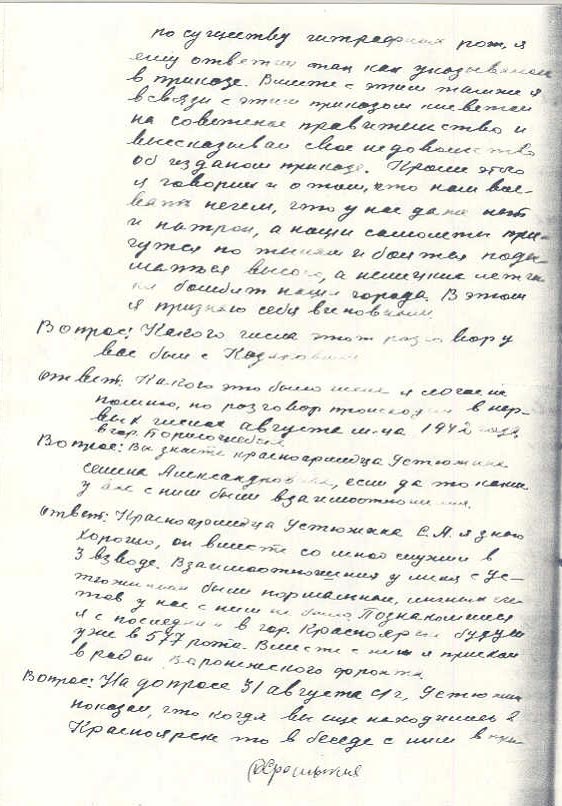 по существу штрафных рот, я
ему ответил так как указывалось
в приказе. Вместе с этим также я
в связи с этим приказом клеветал
на советское правительство и
высказывал свое недовольство
об изданом приказе. Кроме этого
я говорил и о том, что нам вое-
вать нечем, что у нас даже нет
и патрон, а наши самолеты пря-
чутся по тылам и боятся поды-
маться высоко, а немецкие летчи-
ки бомбят наши города. В этом
я признаю себя виновным.
Вопрос: Какого числа этот разговор у
вас был с Казаковым
Ответ: Какого это было числа я сейчас не
помню, но разговор происходил в пер-
вых числах августа м-ца 1942 года,
в гор. Борисоглебске
Вопрос: Вы знаете красноармейца Устюжина
Семена Александровича, если да то какие
у вас с ним были взаимоотношения.
Ответ: Красноармейца Устюжина С.А. я знаю
хорошо, он вместе со мной служил в
3 взводе. Взаимоотношения у меня с Ус-
тюжиным были нормальные, личных сче-
тов у нас с ним не было. Познакомился
я с последним в гор. Красноярске будучи
уже в 577 рота. Вместе с ним я приехал
в район Воронежского фронта.
Вопрос: На допросе 31 августа с/г, Устюжин
показал, что когда вы еще находились в
Красноярске то в беседе с ним в